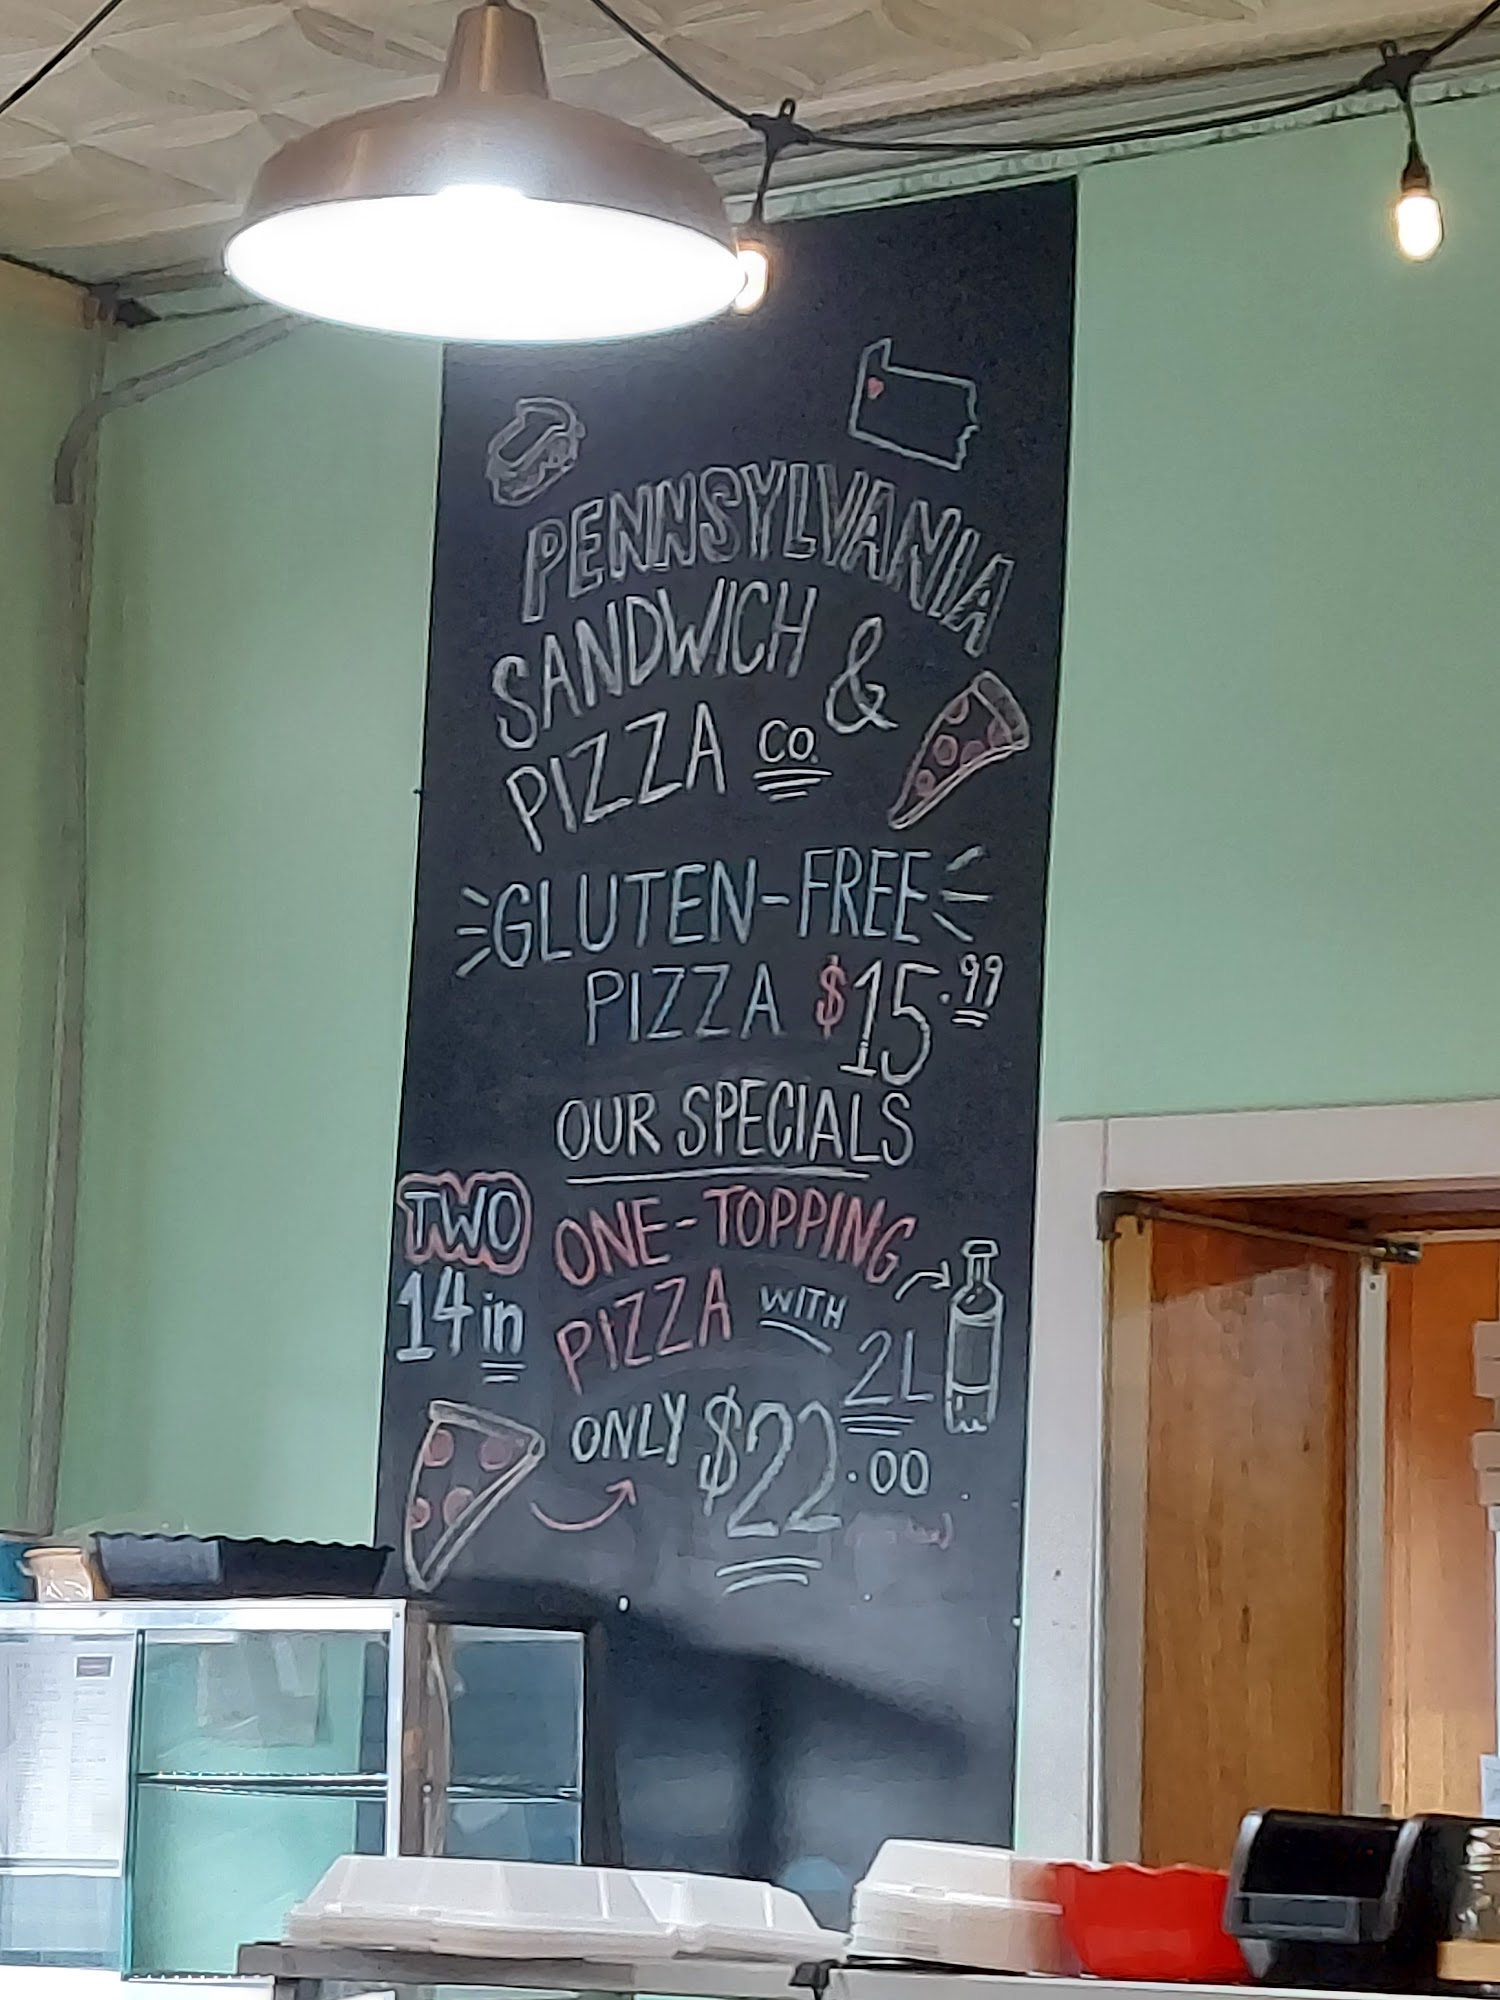 PENNSYLVANIA
SANDWICH &
PIZZA CO.
GLUTEN-FREE
PIZZA $15.99
OUR SPECIALS
TWO ONE-TOPPING
14in PIZZA WITH 2L
ONLY $22.00